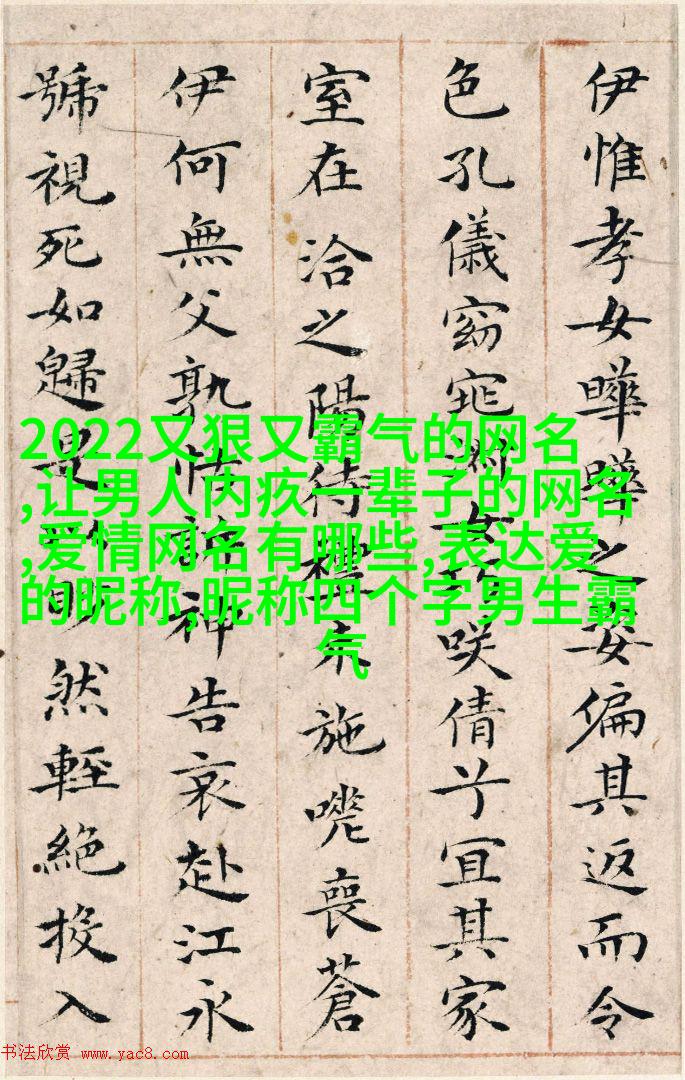 伊惟孝女曄曄之姿偏其返而令
色孔儀窈窕淑女巧咲倩兮宜其家
室在洽之陽待禮未施嗟喪蒼
伊何無父孰怙訴神告哀赴江永
號視死如歸是以眇然輕絕投入
2022又狠又霸气的网名
,让男人内疚一辈子的网名
,爱情网名有哪些,表达爱
的昵称,昵称四个字男生霸
气
书法欣赏 www.yac8.com